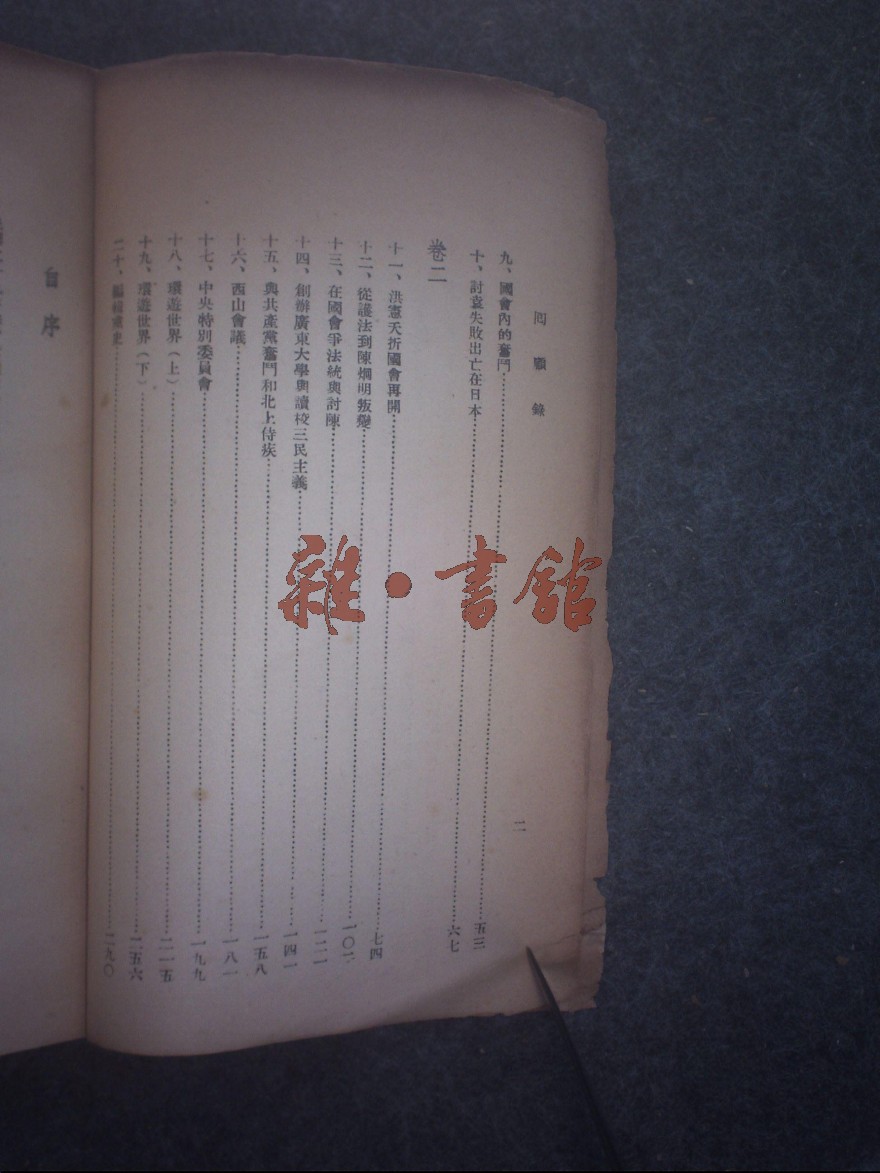 回顧錄
二
九、國會內的奮鬥……五三
十、討袁失敗出亡在日本……六七
卷二
十一、洪憲夭折國會再開……七四
十二、從護法到陳烱明叛變……一〇一
十三、在國會爭法統與討陳……一二一
十四、創辦廣東大學與讀校三民主義……一四一
十五、與共產黨奮鬥和北上侍疾……一五八
十六、西山會議……一八一
十七、中央特別委員會……一九九
十八、環遊世界（上）……二一五
十九、環遊世界（下）……二五六
二十、編……二九〇
自序
雜·書館